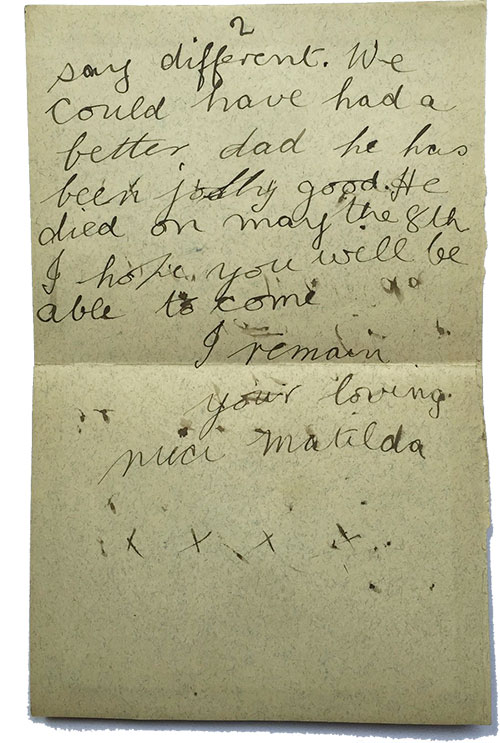 2
say different. We
could have had a
better dad he has
been jolly good. He
died on may the 8th
I hope you will be
able to come
I remain
your loving
neice Matilda
x x x x